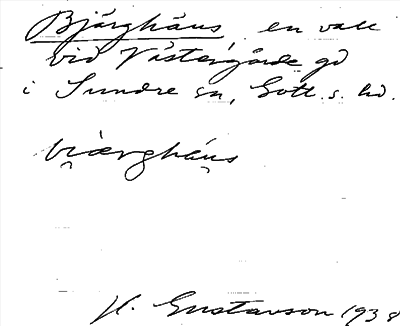 Bjärghäus, en vall
vid Västergårde gd
i Sundre sn, Gotl. s. hd.
biærghá̀u̯s
H. Gustavson 1938